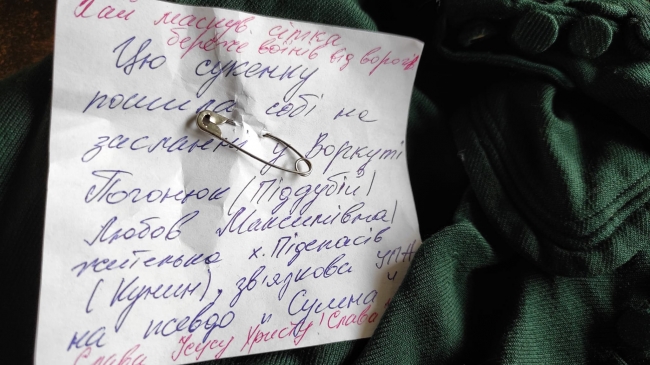 Хай маскув. сітка
береже воїнів від ворогів
Цю сукенку
пошила собі на
засланні у Воркуті
Погонюк (Піддубій)
Любов Максимівна,
жителька х. Підспасів
(Кунин), зв'язкова УПА
на псевдо "Сумна"
Слава Ісусу Христу! Слава